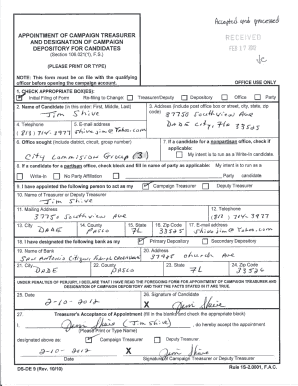 Accepted and processed
APPOINTMENT OF CAMPAIGN TREASURER
AND DESIGNATION OF CAMPAIGN
DEPOSITORY FOR CANDIDATES
(Section 106.021(1), F.S.)
(PLEASE PRINT OR TYPE)
NOTE: This form must be on file with the qualifying
officer before opening the campaign account.
RECEIVED
FEB 17
OFFICE USE ONLY
1. CHECK APPROPRIATE BOX(ES):
Initial Filing of Form Re-filing to Change: Treasurer/Deputy Depository Office Party
2. Name of Candidate (in this order: First, Middle, Last)
Jim Shive
3. Address (include post office box or street, city, state, zip code)
37750 Southview Ave
Dade City, Fla 33525
4. Telephone
(813) 715-3977
5. E-mail address
shivejim@Yahoo.com
6. Office sought (include district, circuit, group number)
City Commision Group (3)
7. If a candidate for a nonpartisan office, check if applicable:
My intent is to run as a Write-In candidate
8. If a candidate for a partisan office, check block and fill in name of party as applicable: My intent is to run as a
Write-In No Party Affiliation Party candidate
9. I have appointed the following person to act as my Campaign Treasurer Deputy Treasurer
10. Name of Treasurer or Deputy Treasurer
Jim Shive
11. Mailing Address
37750 Southview Ave
12. Telephone
13. City
Dade
14. County
Pasco
15. State
FL
16. Zip Code
33525
17. E-mail address
shivejim@Yahoo.com
18. I have designated the following bank as my Primary Depository Secondary Depository
19. Name of Bank
San Antonio Citizen
20. Address
Church Ave
21. City
Dade
22. County
Pasco
23. State
FL
24. Zip Code
UNDER PENALTIES OF PERJURY, I DECLARE THAT I HAVE READ THE FOREGOING FORM FOR APPOINTMENT OF CAMPAIGN TREASURER AND
DESIGNATION OF CAMPAIGN DEPOSITORY AND THAT THE FACTS STATED IN IT ARE TRUE.
25. Date
2-10-2012
26. Signature of Candidate
X Jim Shive
27. Treasurer's Acceptance of Appointment (fill in the blanks and check the appropriate block)
I, Jim Shive (Jim Shive), do hereby accept the appointment
(Please Print or Type Name)
designated above as: Campaign Treasurer Deputy Treasurer
2-10-2012 X Jim Shive
Date Signature of Campaign Treasurer or Deputy Treasurer
DS-DE 9 (Rev. 10/10) Rule 1S-2.0001, F.A.C.